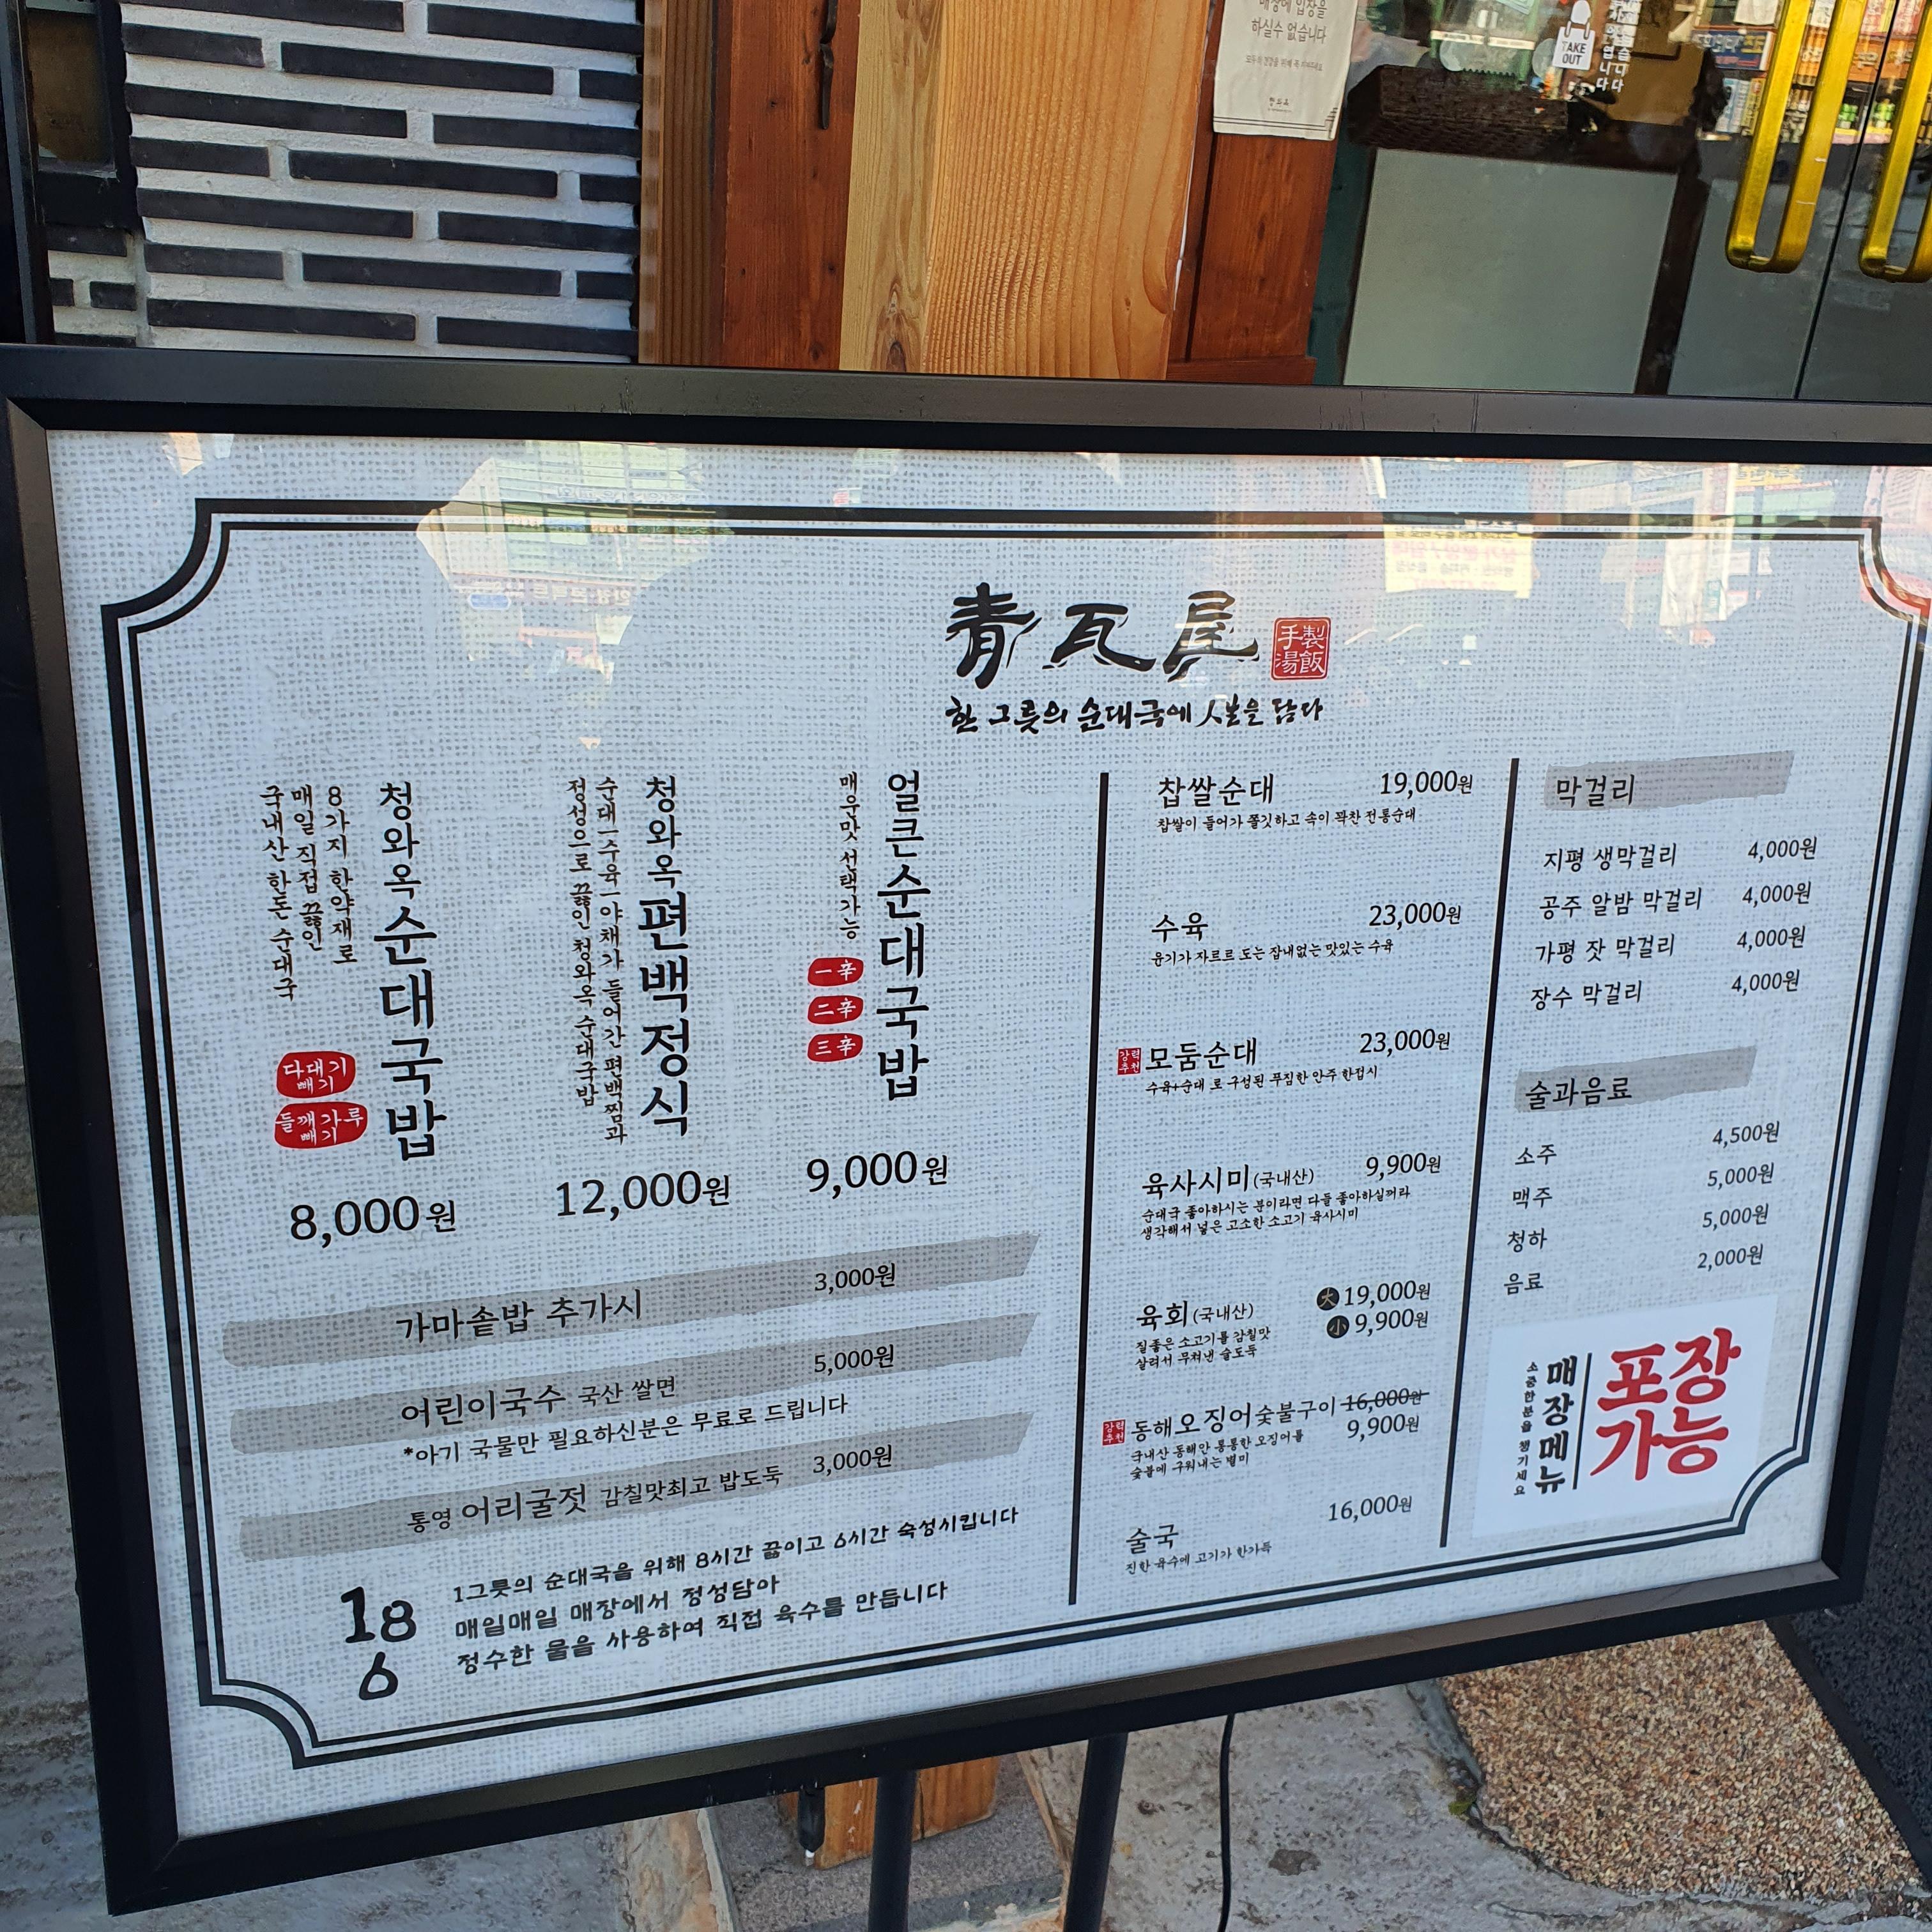 매장에 입장을
하실수 없습니다
TAKE
OUT
青瓦屋
手製
湯飯
한 그릇의 순대국에 人生을 담다
청와옥 순대국밥
8가지 한약재로
매일 직접 끓인
국내산 한돈 순대국
다대기
빼기
들깨가루
빼기
8,000원
청와옥 편백정식
순대—수육—야채가 들어간 편백찜과
정성으로 끓인 청와옥 순대국밥
12,000원
얼큰순대국밥
매운맛 선택가능
一辛
二辛
三辛
9,000원
가마솥밥 추가시 3,000원
어린이국수 국산 쌀면 5,000원
*아기 국물만 필요하신분은 무료로 드립니다
통영 어리굴젓 감칠맛최고 밥도둑 3,000원
1 8 6
1그릇의 순대국을 위해 8시간 끓이고 6시간 숙성시킵니다
매일매일 매장에서 정성담아
정수한 물을 사용하여 직접 육수를 만듭니다
찹쌀순대 19,000원
찹쌀이 들어가 쫄깃하고 속이 꽉찬 전통순대
수육 23,000원
윤기가 자르르 도는 잡내없는 맛있는 수육
강력추천 모둠순대 23,000원
수육+순대 로 구성된 푸짐한 안주 한접시
육사시미(국내산) 9,900원
순대국 좋아하시는 분이라면 다들 좋아하실꺼라
생각해서 넣은 고소한 소고기 육사시미
육회(국내산) 大 19,000원
小 9,900원
질좋은 소고기를 감칠맛
살려서 무쳐낸 술도둑
강력추천 동해오징어숯불구이 16,000원
9,900원
국내산 동해안 통통한 오징어를
숯불에 구워내는 별미
술국 16,000원
진한 육수에 고기가 한가득
막걸리
지평 생막걸리 4,000원
공주 알밤 막걸리 4,000원
가평 잣 막걸리 4,000원
장수 막걸리 4,000원
술과음료
소주 4,500원
맥주 5,000원
청하 5,000원
음료 2,000원
소중한분을 챙기세요
매장메뉴
포장
가능